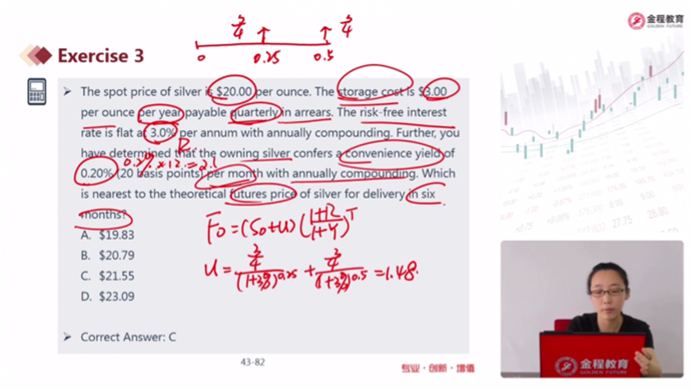 金程教育
GOLDEN FUTURE
Exercise 3
3/4 3/4
0 0.25 0.5
The spot price of silver is $20.00 per ounce. The storage cost is $3.00
per ounce per year payable quarterly in arrears. The risk-free interest
rate is flat at 3.0% per annum with annually compounding. Further, you
R
have determined that the owning silver confers a convenience yield of
0.20% (20 basis points) per month with annually compounding. Which
is nearest to the theoretical futures price of silver for delivery in six
months?
F0=(S0+U)(1+R/1+Y)^T
A. $19.83
B. $20.79
C. $21.55
D. $23.09
U = 3/4/(1+3%)^0.25 + 3/4/(1+3%)^0.5 = 1.48.
Correct Answer: C
43-82
专业·创新·增值
金程教育
GOLDEN FUTURE